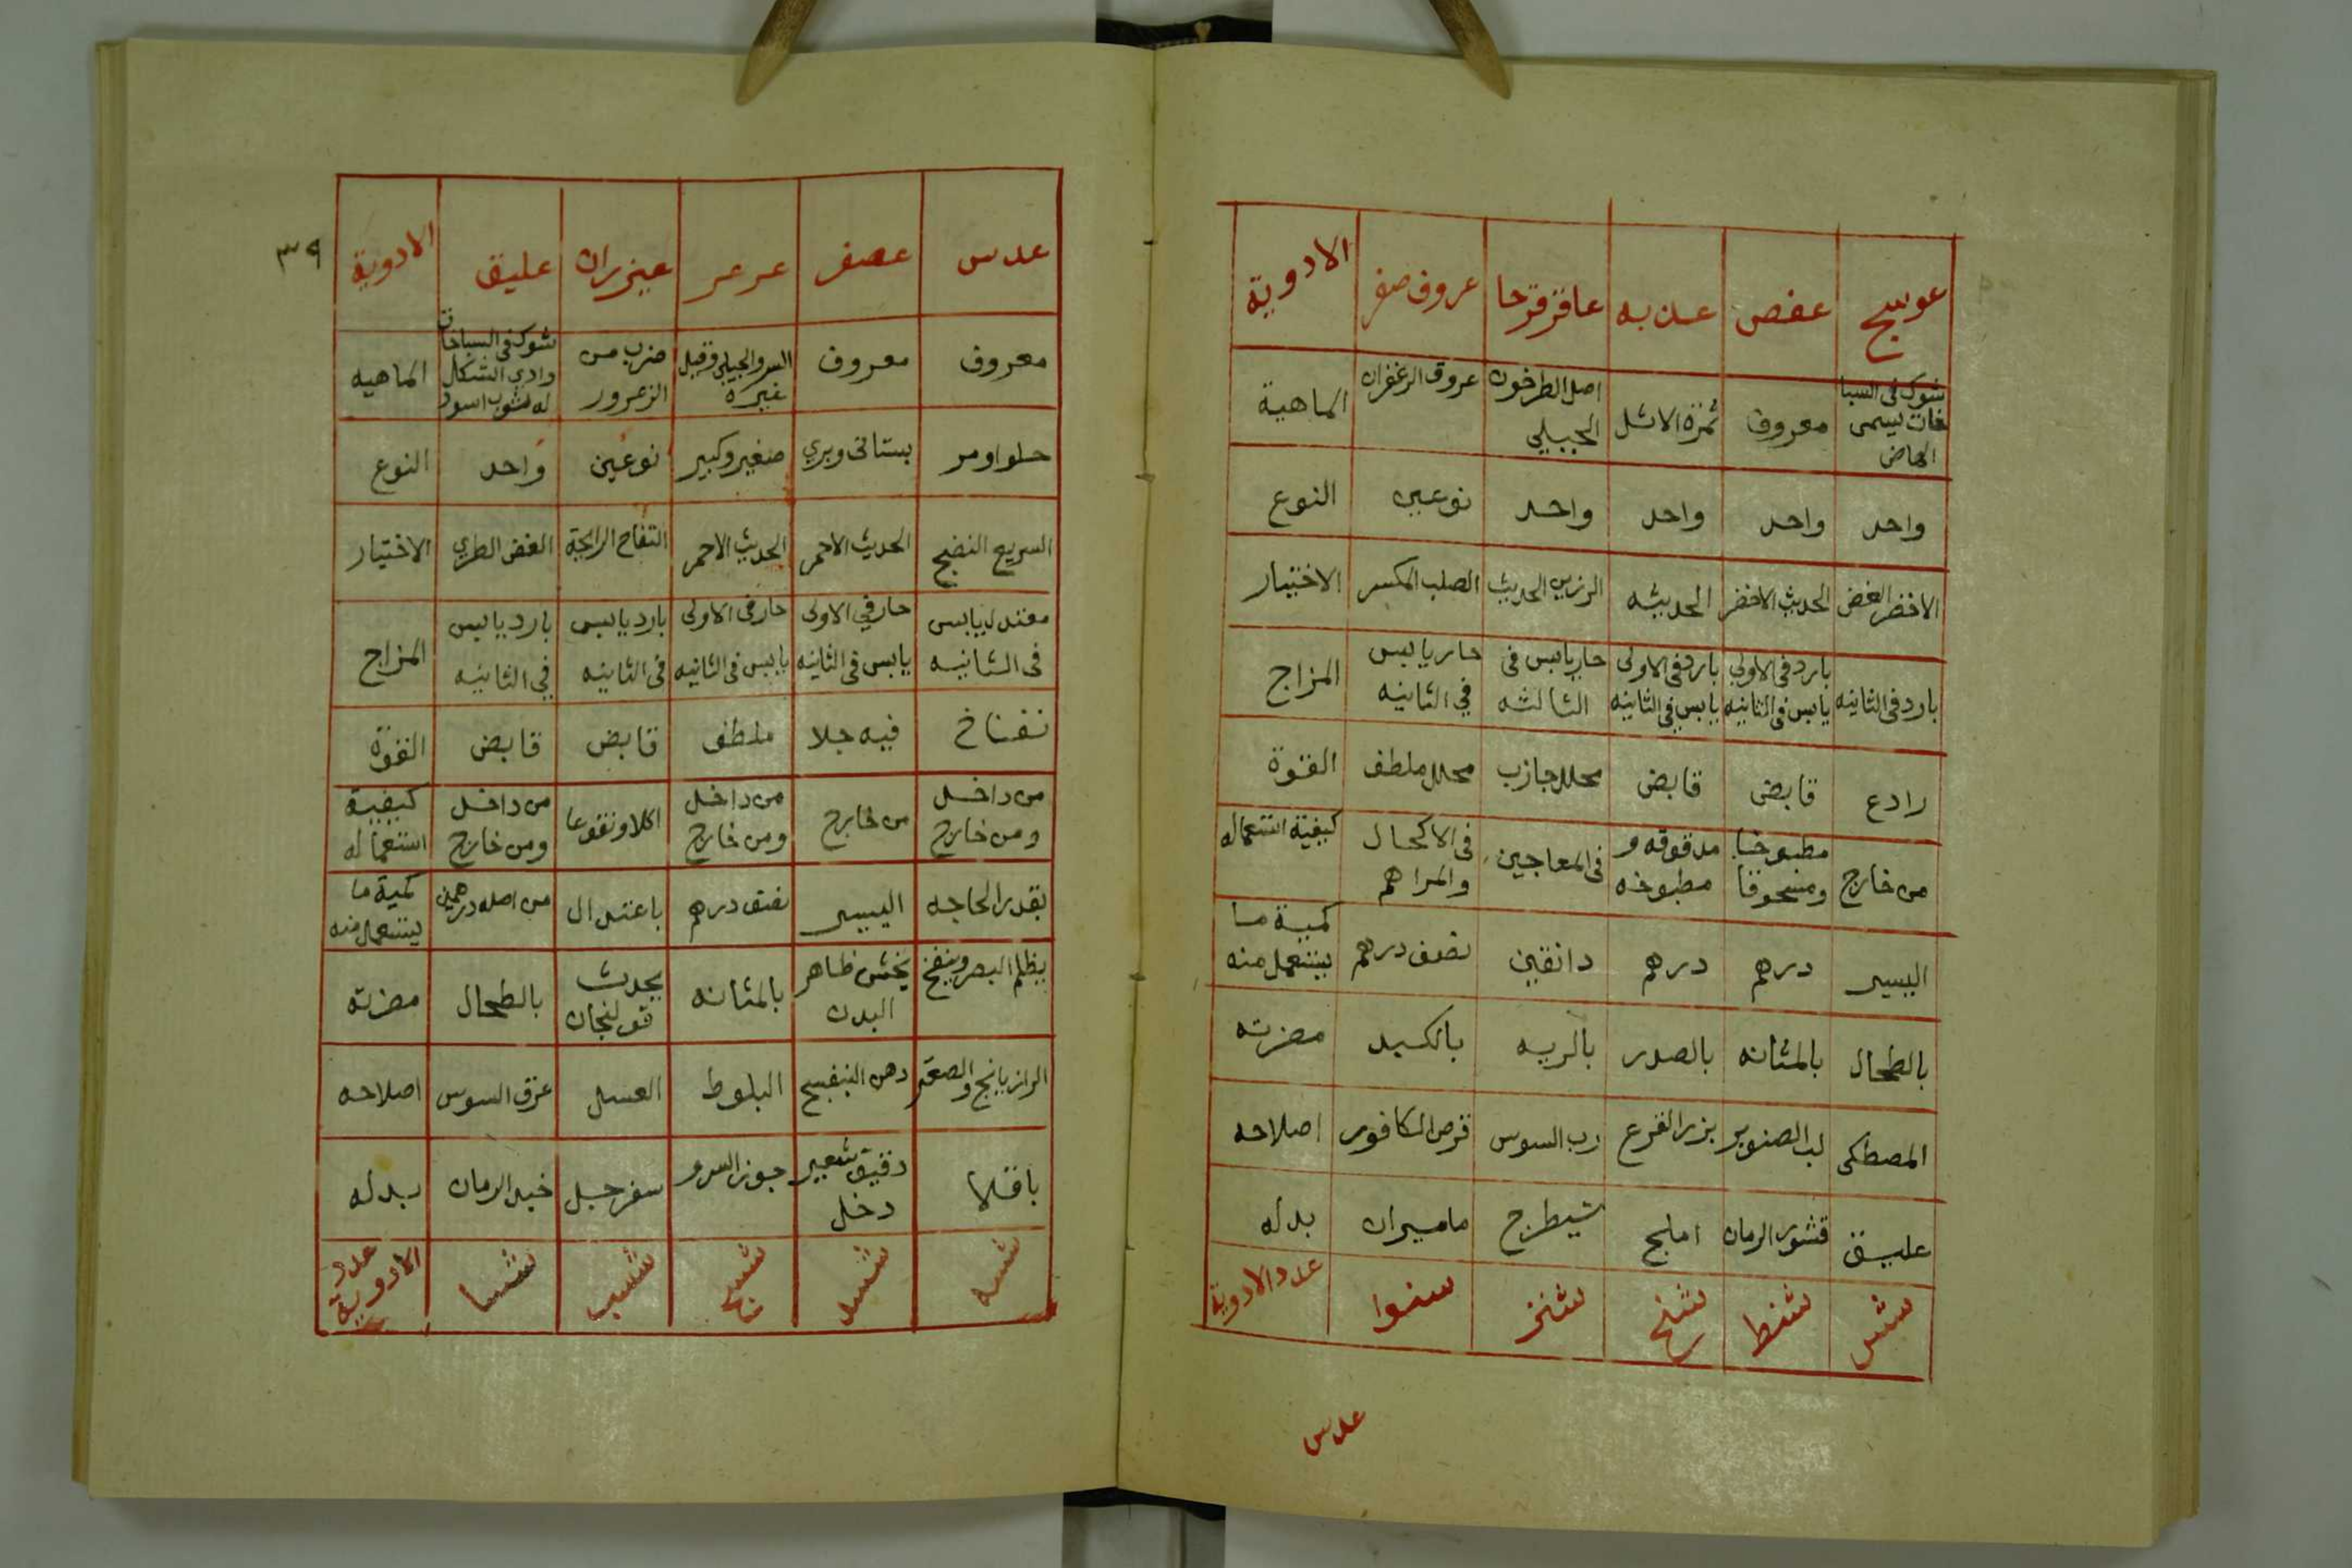 عوسج عفص عذبه عاقرقرحا عروق صفر الادوية
شوك فى السبا خات يسمى معروف ثمرة الاثل اصل الطرخون الجبلي عروق الزعفران الماهية
واحد واحد واحد واحد نوعين النوع
الاخضر الغض الحديث الاخضر الحديثه الرزين الحديث الصلب المكسر الاختيار
بارد فى الثانيه بارد فى الاولى يابس فى الثانيه بارد فى الاولى يابس فى الثانيه حار يابس فى الثالثه حار يابس في الثانيه المزاج
رادع قابض قابض محلل جازب محلل ملطف القوة
من خارج مطبوخا ومسحوقا مدقوقه و مطبوخه فى المعاجين فى الاكحال والمراهم كيفية استعماله
اليسير درهم درهم دانقين نصف درهم كمية ما يستعمل منه
بالطحال بالمثانه بالصدر بالريه بالكبد مضرته
المصطكى لب الصنوبر بزر القرع رب السوس قرص الكافور اصلاحه
عليق قشور الرمان املج شيطرج ماميران بدله
عدد الادوية
عدس
٣٩
عدس عصفر عرعر عيزران عليق الادوية
معروف معروف السرو الجبلي وقيل غيره ضرب من الزعرور شوك فى السباخات الماهيه
حلو او مر بستانى وبري صغير وكبير نوعين واحد النوع
السريع النضج الحديث الاحمر الحديث الاحمر التفاح الرايحة الغض الطري الاختيار
معتدل يابس فى الثانيه حار في الاولى يابس فى الثانيه حار فى الاولى يابس فى الثانيه بارد يابس فى الثانيه بارد يابس في الثانيه المزاج
نفاخ فيه جلا ملطف قابض قابض القوة
من داخل ومن خارج من خارج من داخل ومن خارج اكلا ونقوعا من داخل ومن خارج كيفية استعماله
بقدر الحاجه اليسير نصف درهم باعتدال من اصله درهمين كمية ما يستعمل منه
يظلم البصر وينفخ يخشن ظاهر البدن بالمثانه يحدث قولنجان بالطحال مضرته
الرازيانج والصعتر دهن البنفسج البلوط العسل عرق السوس اصلاحه
باقلا دقيق شعير وخل جوز السرو سفرجل بدله
عدد الادوية